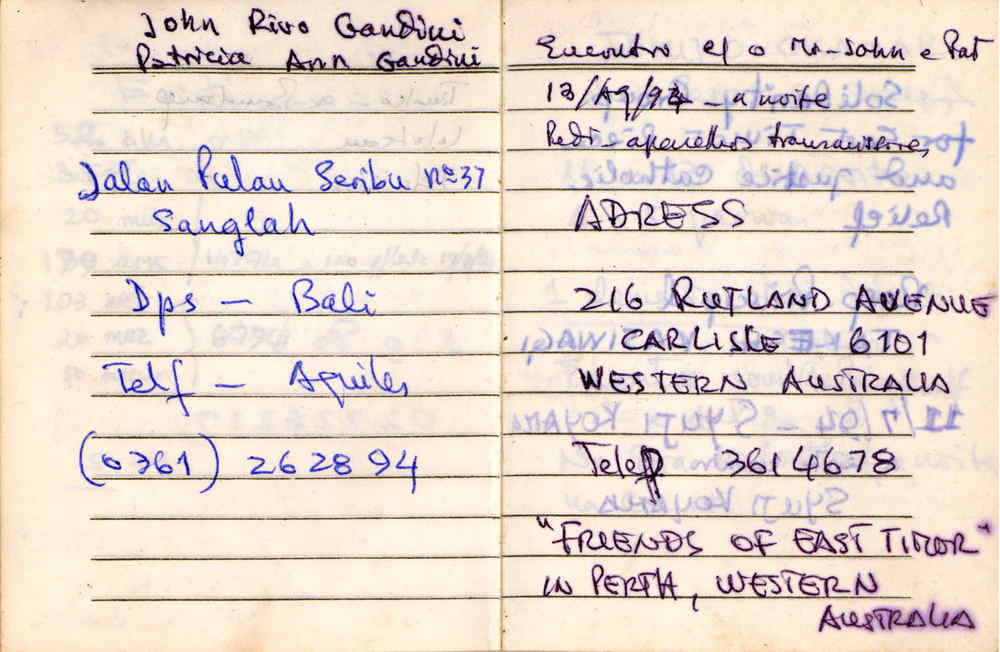 John Rivo Gandini
Patricia Ann Gandini
Jalan Pulau Seribu nº 37
Sanglah
Dps - Bali
Telf - Aquiles
(0361) 262894
Encontro c/ o Mr. John e Pat
13/Ag/94 - a noite
Pedi aparelhos
ADRESS
216 RUTLAND AVENUE
CARLISLE 6101
WESTERN AUSTRALIA
Telef 3614678
"FRIENDS OF EAST TIMOR"
IN PERTH, WESTERN
AUSTRALIA